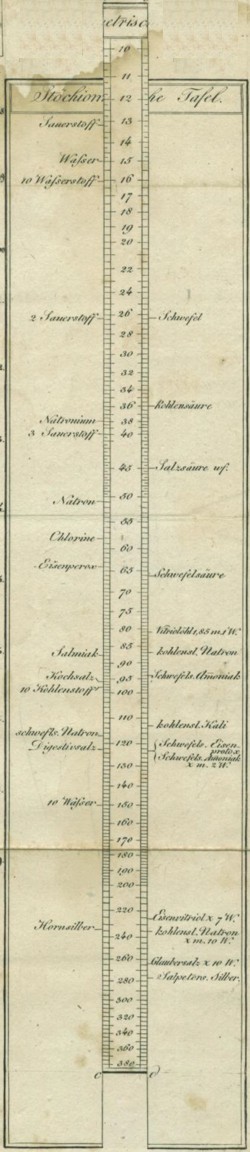 etrisc
10
11
Stöchiom
12
he Tafel.
Sauerstoff
13
14
Waßer
15
10 Waßerstoff
16
17
18
19
20
22
24
2 Sauerstoff
26
Schwefel
28
30
32
34
36
Kohlensäure
Natronium
38
3 Sauerstoff
40
45
Salzsäure wf.
Natron
50
55
Chlorine
60
Eisenperox
65
Schwefelsäure
70
75
80
Vitriolöhl 1,85 m. 1 W.
Salmiak
85
kohlensl. Natron
90
Kochsalz
95
Schwefels. Amoniak
10 Kohlenstoff
100
110
kohlensl. Kali
schwefls. Natron
Digestivsalz
120
Schwefels. Eisen
protox
Schwefels. Amoniak
x m. 2 W.
130
140
10 Waßer
150
160
170
180
190
200
220
Eisenvitriol x 7 W.
Hornsilber
240
kohlensl. Natron
x m. 10 W.
260
Glaubersalz x 10 W.
280
Salpeters. Silber.
300
320
340
360
380
c
d